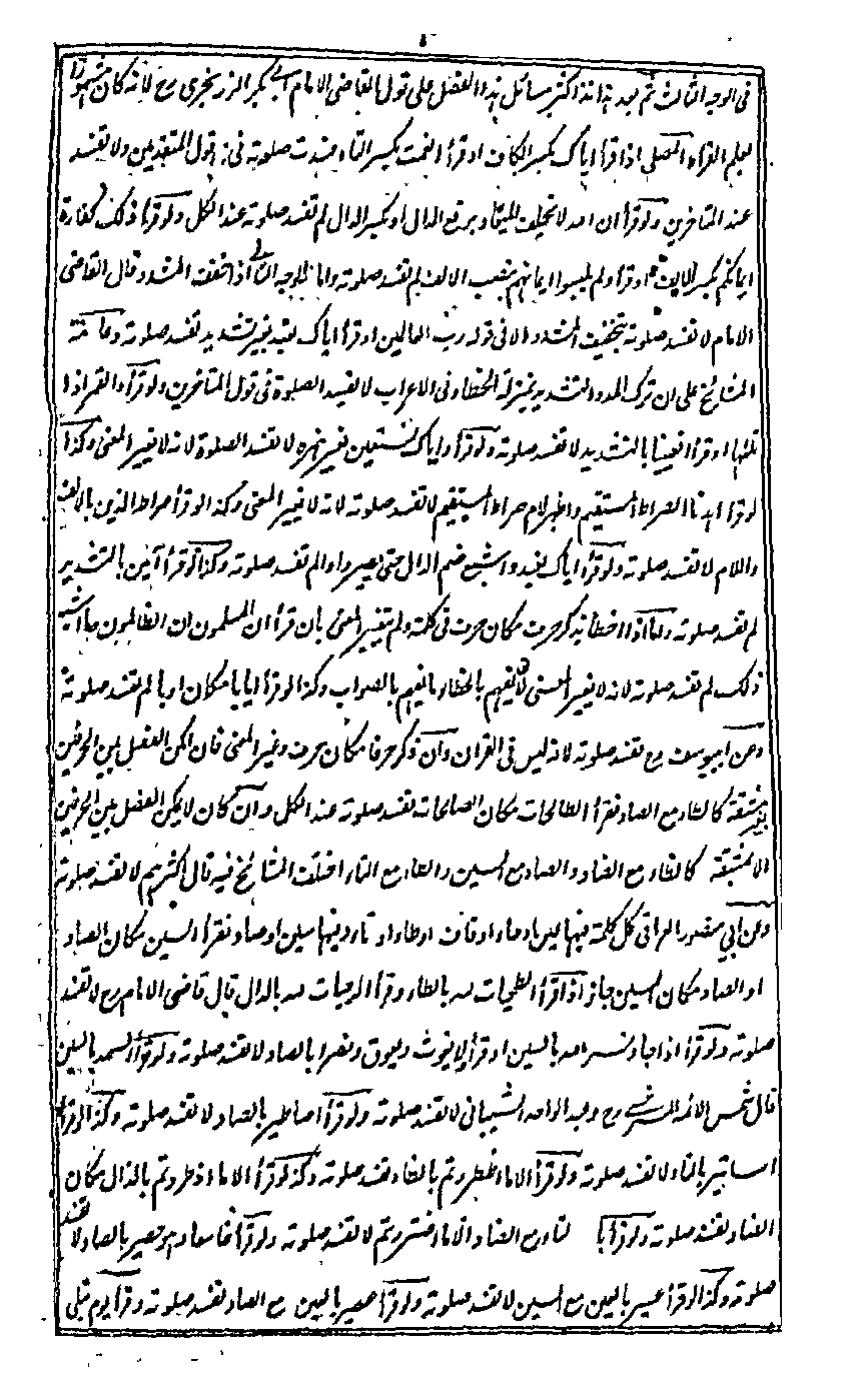 فى الوجه الثالث ثم بعد هذا نذكر اكثر مسائل هذا الفصل على قول القاضى الامام ابى بكر الزرنجرى رح لانه كان مشهورا
بعلم القراءة المصلى اذا قرأ اياك بكسر الكاف او قرأ انعمت بكسر التاء فسدت صلوته فى قول المتقدمين ولا تفسد
عند المتاخرين ولو قرأ ان الله لا تخلف الميعاد برفع الدال او بكسر الدال لم تفسد صلوته عند الكل ولو قرأ ذلك كفارة
ايمانكم بكسر الالف او قرأ ولم يلبسوا ايمانهم بنصب الالف لم تفسد صلوته واما الوجه الثانى اذا خفف المشدد قال القاضى
الامام لا تفسد صلوته بتخفيف المشدد الا فى قوله رب العالمين او قرأ اياك نعبد بغير تشديد تفسد صلوته وعامة
المشائخ على ان ترك المد والتشديد بمنزلة الخطاء فى الاعراب لا تفسد الصلوة فى قول المتاخرين ولو قرأ والقمر اذا
تلٰىها او قرأ افعيينا بالتشديد لا تفسد صلوته ولو قرأ واياك نستعين بغير همزه لا تفسد الصلوة لانه لا يغير المعنى وكذا
لو قرأ اهدنا الصراط المستقيم واظهر لام صراط المستقيم لا تفسد صلوته لانه لا يغير المعنى وكذا لو قرأ صراط الذين بالالف
واللام لا تفسد صلوته ولو قرأ اياك نعبد واشبع ضم الدال حتى يصير واوا لم تفسد صلوته وكذا لو قرأ آمين بالتشديد
لم تفسد صلوته واما اذا اخطأ بذكر حرف مكان حرف فى كلمة ولم يتغير المعنى بان قرأ ان المسلمون ان الظالمون وما اشبه
ذلك لم تفسد صلوته لانه لا يغير المعنى لانه يفهم بالخطاء ما يفهم بالصواب وكذا لو قرأ ايابا مكان اوابا لم تفسد صلوته
وعن ابيوسف رح تفسد صلوته لانه ليس فى القران وان ذكر حرفا مكان حرف وغير المعنى فان امكن الفصل بين الحرفين
بغير مشقة كالطاء مع الصاد فقرأ الطالحات مكان الصالحات تفسد صلوته عند الكل وان كان لا يمكن الفصل بين الحرفين
الا بمشقة كالظاء مع الضاد والصاد مع السين والطاء مع التاء اختلف المشائخ فيه قال اكثرهم لا تفسد صلوته
وعن ابى منصور العراقى كل كلمة فيها عين او حاء او قاف او طاء او تاء وفيها سين او صاد فقرأ السين مكان الصاد
او الصاد مكان السين جاز اذا قرأ الطحيات لله بالطاء وقرأ الدحيات لله بالدال قال قاضى الامام رح لا تفسد
صلوته ولو قرأ اذا جاء نسر الله بالسين او قرأ ولا يغوث ويعوق ونصرا بالصاد لا تفسد صلوته ولو قرأ السمد بالسين
قال شمس الائمة السرخسى رح وعبد الواحد الشيبانى لا تفسد صلوته ولو قرأ اصاطير بالصاد لا تفسد صلوته وكذا لو قرأ
اساتير بالتاء لا تفسد صلوته ولو قرأ الا ما اظطررتم بالظاء تفسد صلوته وكذا لو قرأ الا ما اذطررتم بالذال مكان
الضاد تفسد صلوته ولو قرأ بالتاء مع الضاد الا ما اضتررتم لا تفسد صلوته ولو قرأ خاسعا وهو حصير بالصاد لا تفسد
صلوته وكذا لو قرأ عسير بالعين مع السين لا تفسد صلوته ولو قرأ عصير بالعين مع الصاد تفسد صلوته وقرأ يوم تبلى